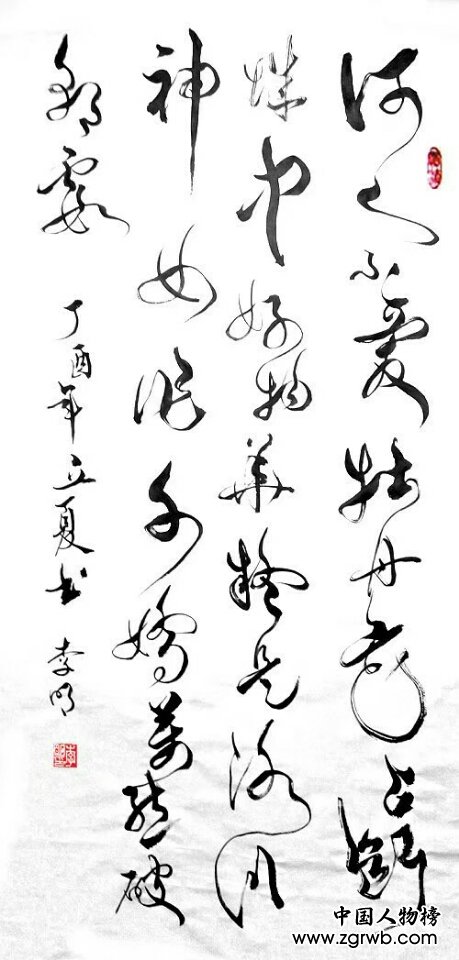 何人不愛牡丹花占斷
城中好物華疑是洛川
神女作千嬌萬態破
朝霞 丁酉年立夏书 李明
中国人物榜
www.zgrwb.com